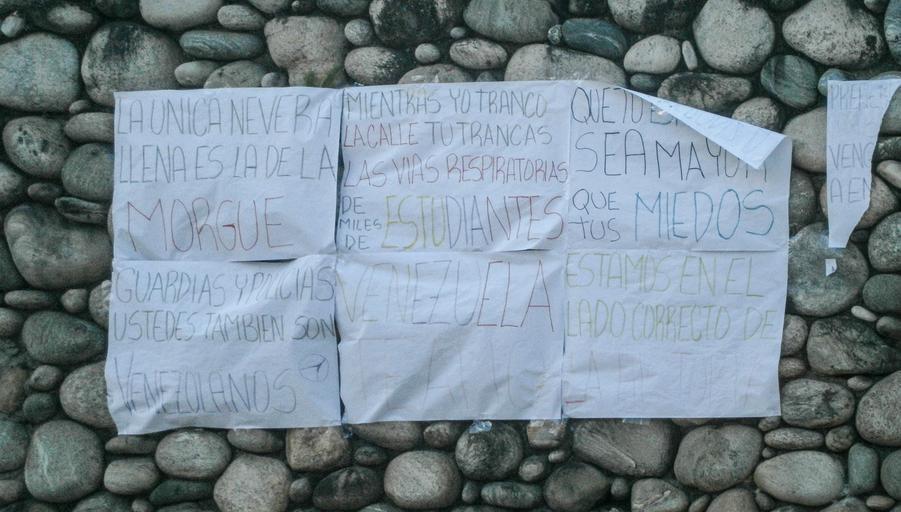 LA UNICA NEVERA
LLENA ES LA DE LA
MORGUE
MIENTRAS YO TRANCO
LA CALLE TU TRANCAS
LAS VIAS RESPIRATORIAS
DE
MILES
DE
ESTUDIANTES
QUE TU
SEA MAYOR
QUE
TUS
MIEDOS
GUARDIAS Y POLICIAS
USTEDES TAMBIEN SON
VENEZOLANOS
VENEZUELA
TE AMO
ESTAMOS EN EL
LADO CORRECTO DE
LA
VENC
A EN